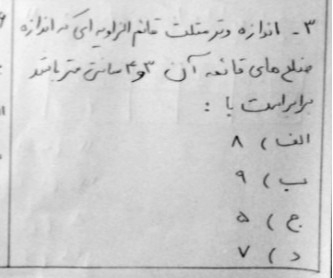 ۳- اندازه وتر مثلث قائم الزاویه ای که اندازه
ضلع های قائمه آن ۳ و ۴ سانتی متر باشد
برابر است با :
الف ) ۸
ب ) ۹
ج ) ۵
د ) ۷